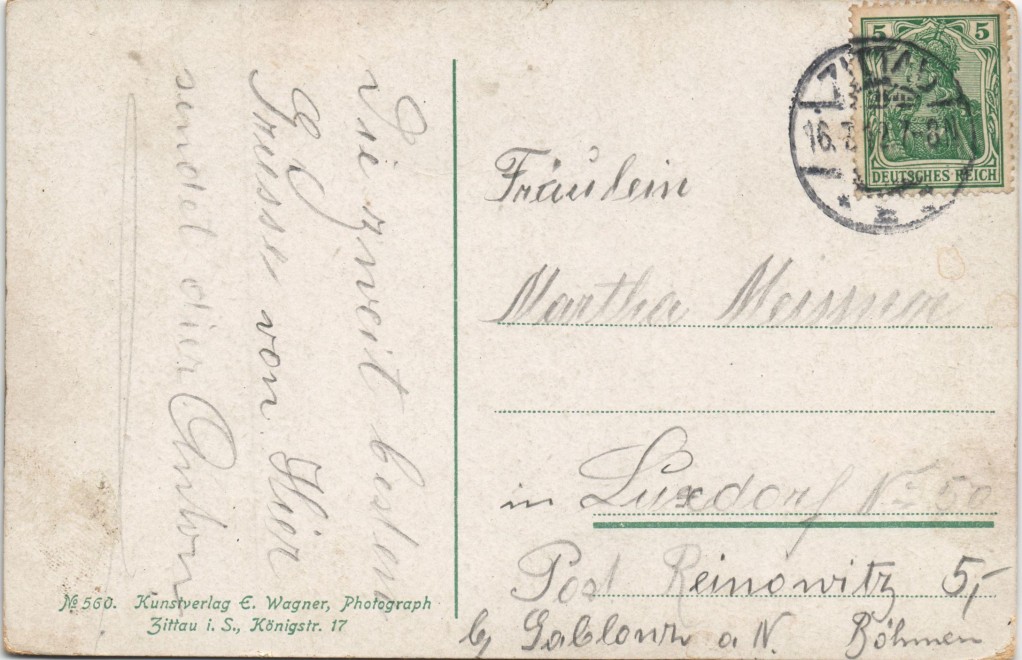 Die zweit besten
Grüsse von Hier
sendet dir Anton
5 5
DEUTSCHES REICH
ZITTAU
16.
Fräulein
Martha Meissner
in Luxdorf No 50
Post Reinowitz 5,-
b/ Gablonz a N. Böhmen
No 560. Kunstverlag E. Wagner, Photograph
Zittau i. S., Königstr. 17